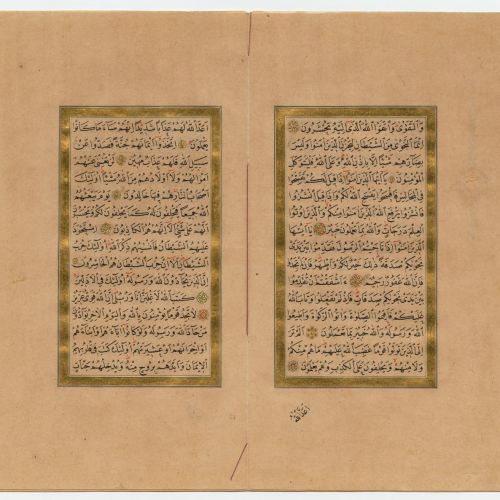 وَالتَّقْوٰى وَاتَّقُوا اللّٰهَ الَّذٖى اِلَيْهِ تُحْشَرُونَ
اِنَّمَا النَّجْوٰى مِنَ الشَّيْطَانِ لِيَحْزُنَ الَّذٖينَ اٰمَنُوا وَلَيْسَ
بِضَارِّهِمْ شَيْئًا اِلَّا بِاِذْنِ اللّٰهِ وَعَلَى اللّٰهِ فَلْيَتَوَكَّلِ
الْمُؤْمِنُونَ يَا اَيُّهَا الَّذٖينَ اٰمَنُوا اِذَا قٖيلَ لَكُمْ تَفَسَّحُوا
فِى الْمَجَالِسِ فَافْسَحُوا يَفْسَحِ اللّٰهُ لَكُمْ وَاِذَا قٖيلَ انْشُزُوا
فَانْشُزُوا يَرْفَعِ اللّٰهُ الَّذٖينَ اٰمَنُوا مِنْكُمْ وَالَّذٖينَ اُوتُوا
الْعِلْمَ دَرَجَاتٍ وَاللّٰهُ بِمَا تَعْمَلُونَ خَبٖيرٌ يَا اَيُّهَا
الَّذٖينَ اٰمَنُوا اِذَا نَاجَيْتُمُ الرَّسُولَ فَقَدِّمُوا بَيْنَ يَدَىْ
نَجْوٰيكُمْ صَدَقَةً ذٰلِكَ خَيْرٌ لَكُمْ وَاَطْهَرُ فَاِنْ لَمْ تَجِدُوا
فَاِنَّ اللّٰهَ غَفُورٌ رَحٖيمٌ ءَاَشْفَقْتُمْ اَنْ تُقَدِّمُوا
بَيْنَ يَدَىْ نَجْوٰيكُمْ صَدَقَاتٍ فَاِذْ لَمْ تَفْعَلُوا وَتَابَ اللّٰهُ
عَلَيْكُمْ فَاَقٖيمُوا الصَّلٰوةَ وَاٰتُوا الزَّكٰوةَ وَاَطٖيعُوا
اللّٰهَ وَرَسُولَهُ وَاللّٰهُ خَبٖيرٌ بِمَا تَعْمَلُونَ اَلَمْ تَرَ
اِلَى الَّذٖينَ تَوَلَّوْا قَوْمًا غَضِبَ اللّٰهُ عَلَيْهِمْ مَا هُمْ مِنْكُمْ
وَلَا مِنْهُمْ وَيَحْلِفُونَ عَلَى الْكَذِبِ وَهُمْ يَعْلَمُونَ
اعد الله
اَعَدَّ اللّٰهُ لَهُمْ عَذَابًا شَدٖيدًا اِنَّهُمْ سَاءَ مَا كَانُوا
يَعْمَلُونَ اِتَّخَذُوا اَيْمَانَهُمْ جُنَّةً فَصَدُّوا عَنْ
سَبٖيلِ اللّٰهِ فَلَهُمْ عَذَابٌ مُهٖينٌ لَنْ تُغْنِىَ عَنْهُمْ
اَمْوَالُهُمْ وَلَا اَوْلَادُهُمْ مِنَ اللّٰهِ شَيْئًا اُولٰئِكَ
اَصْحَابُ النَّارِ هُمْ فٖيهَا خَالِدُونَ يَوْمَ يَبْعَثُهُمُ
اللّٰهُ جَمٖيعًا فَيَحْلِفُونَ لَهُ كَمَا يَحْلِفُونَ لَكُمْ وَيَحْسَبُونَ
اَنَّهُمْ عَلٰى شَىْءٍ اَلَا اِنَّهُمْ هُمُ الْكَاذِبُونَ اِسْتَحْوَذَ
عَلَيْهِمُ الشَّيْطَانُ فَاَنْسٰيهُمْ ذِكْرَ اللّٰهِ اُولٰئِكَ حِزْبُ
الشَّيْطَانِ اَلَا اِنَّ حِزْبَ الشَّيْطَانِ هُمُ الْخَاسِرُونَ
اِنَّ الَّذٖينَ يُحَادُّونَ اللّٰهَ وَرَسُولَهُ اُولٰئِكَ فِى الْاَذَلّٖينَ
كَتَبَ اللّٰهُ لَاَغْلِبَنَّ اَنَا وَرُسُلٖى اِنَّ اللّٰهَ قَوِىٌّ عَزٖيزٌ
لَا تَجِدُ قَوْمًا يُؤْمِنُونَ بِاللّٰهِ وَالْيَوْمِ الْاٰخِرِ يُوَادُّونَ
مَنْ حَادَّ اللّٰهَ وَرَسُولَهُ وَلَوْ كَانُوا اٰبَاءَهُمْ اَوْ اَبْنَاءَهُمْ
اَوْ اِخْوَانَهُمْ اَوْ عَشٖيرَتَهُمْ اُولٰئِكَ كَتَبَ فٖى قُلُوبِهِمُ
الْاٖيمَانَ وَاَيَّدَهُمْ بِرُوحٍ مِنْهُ وَيُدْخِلُهُمْ جَنَّاتٍ